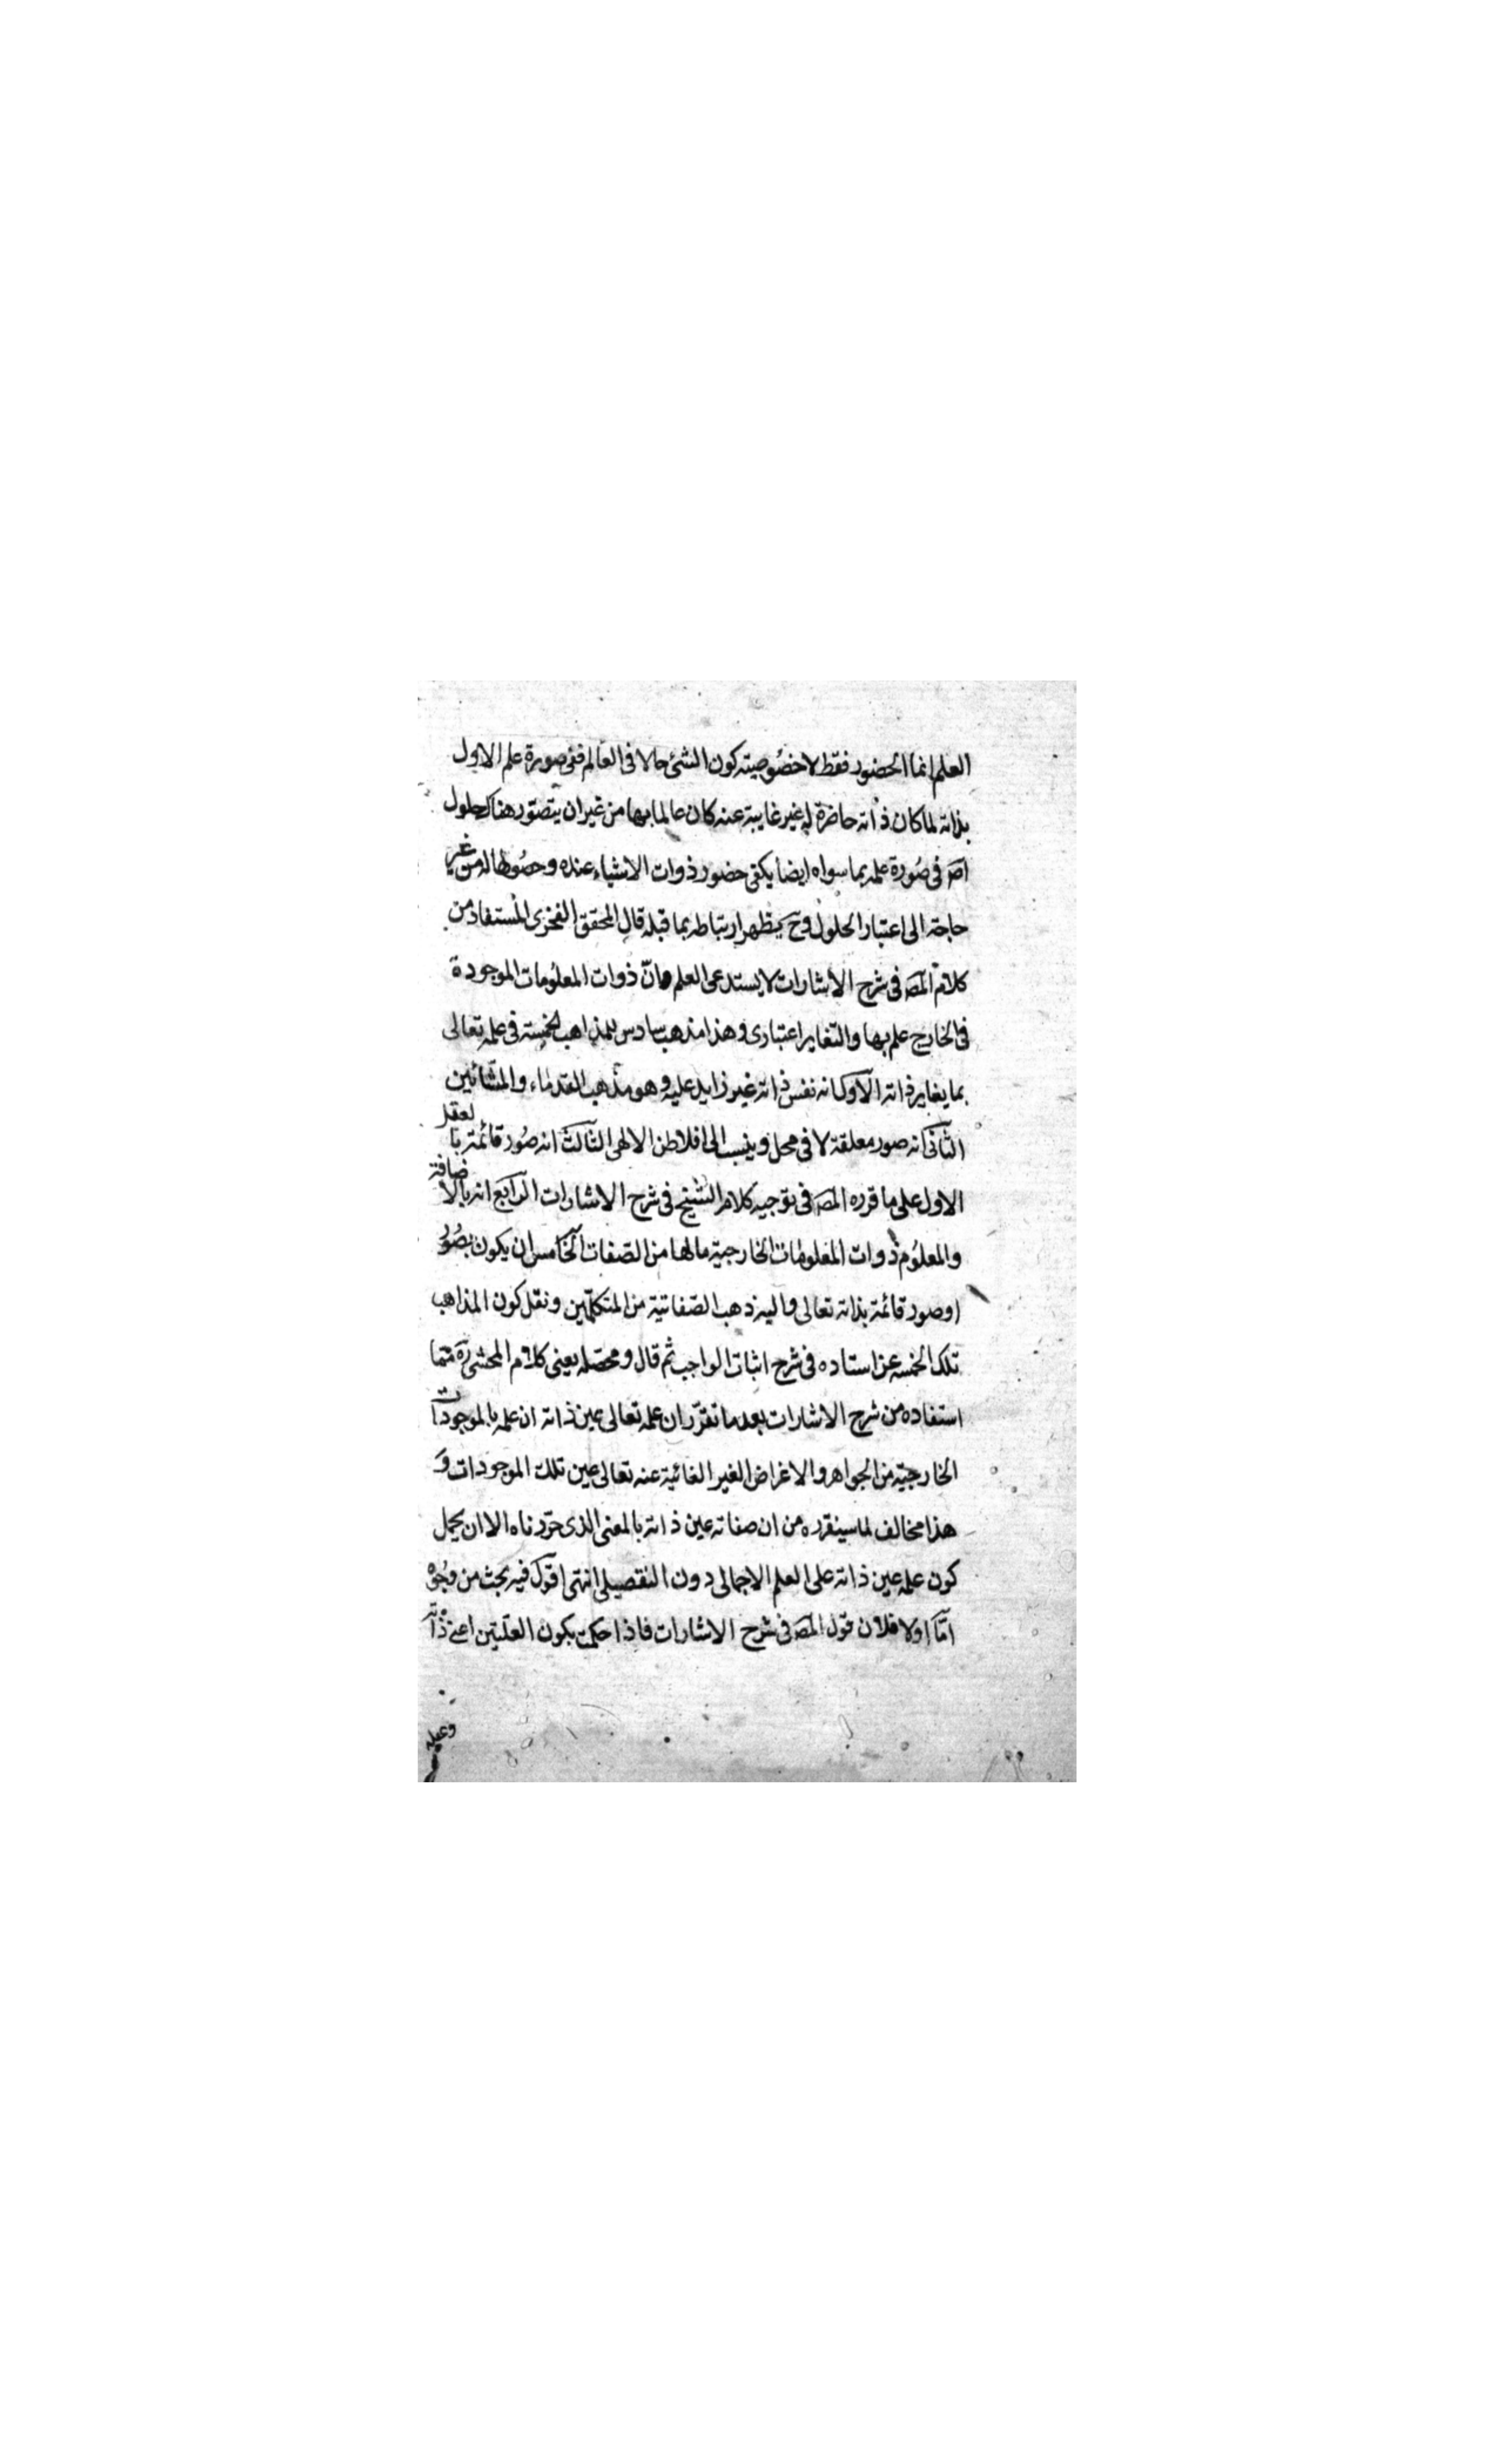 العلم انما الحضور فقط لا خصوصيته كون الشئ حالا فى العالم ففى صورة علم الاول
بذاته لما كان ذاته حاضرة له غير غايبة عنه كان عالما بها من غير ان يتصور هناك حلول
اصـ فى صورة علمه بما سواه ايضا يكفى حضور ذوات الاشياء عنده وحصولها له من غير
حاجة الى اعتبار الحلول وح يظهر ارتباطه بما قبله قال المحقق الفخرى المستفاد من
كلام المصـ فى شرح الاشارات لا يستدعى العلم وانّ ذوات المعلومات الموجودة
فى الخارج علم بها والتغاير اعتبارى وهذا مذهب سادس للمذاهب الخمسة فى علمه تعالى
بما يغاير ذاته الاول انه نفس ذاته غير زايد عليه وهو مذهب القدماء والمشّائين
الثانى انه صور معلقة لا فى محل وينسب الى افلاطن الالهى الثالث انه صور قائمة بالعقل
الاول على ما قرره المصـ فى توجيه كلام الشيخ فى شرح الاشارات الرابع انه بالاضافة
والمعلوم ذوات المعلومات الخارجية مالها من الصّفات الخامس ان يكون بصور
او صور قائمة بذاته تعالى واليه ذهب الصّفاتية من المتكلّمين ونقل كون المذاهب
تلك الخمسه عن استاده فى شرح اثبات الواجب ثم قال ومحصّله يعنى كلام المحشى ره مما
استفاده من شرح الاشارات بعد ما تقرّر ان علمه تعالى عين ذاته ان علمه بالموجودات
الخارجيّة من الجواهر والاعراض الغير الغائبة عنه تعالى عين تلك الموجودات و
هذا مخالف لما سيقرره من ان صفاته عين ذاته بالمعنى الذى حرّرناه الا ان يحمل
كون علمه عين ذاته على العلم الاجمالى دون التفصيلى انتهى اقول فيه بحث من وجوه
امّا اولا فلان قول المصـ فى شرح الاشارات فاذا حكمت بكون العلّتين اعنى ذاته